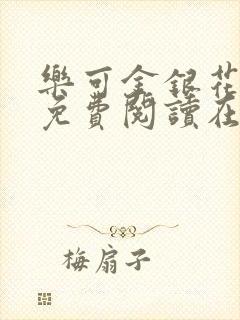 樂可金銀花
免費閱讀在
梅扇子